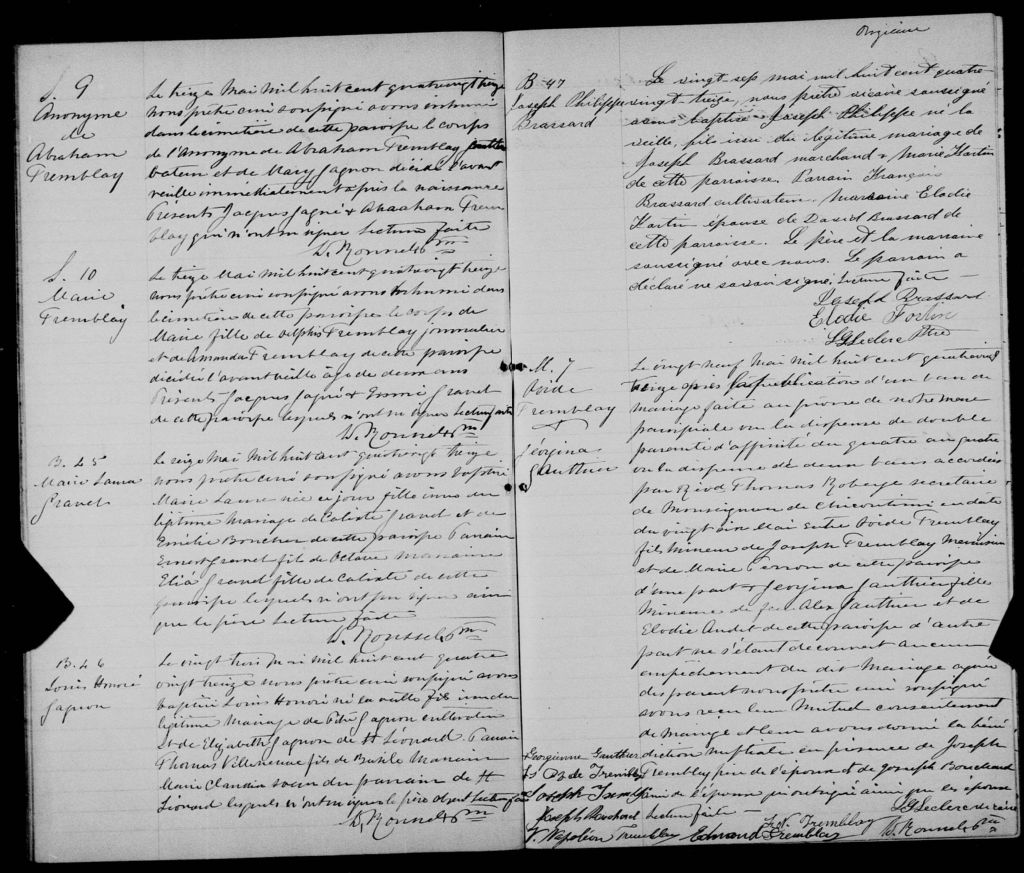 S. 9
Anonyme
de
Abraham
Tremblay
Le treize Mai mil huit cent quatrevingt treize
nous prêtre curé soussigné avons inhumé
dans le cimetière de cette paroisse le corps
de l'Anonyme de Abraham Tremblay
et de Mary Gagnon décédé l'avant
veille immédiatement après la naissance
Présents Jacques Gagné & Abraham Trem
blay qui n'ont su signer Lecture faite
S. 10
Marie
Tremblay
Le treize Mai mil huit cent quatrevingt treize
nous prêtre curé soussigné avons inhumé dans
le cimetière de cette paroisse le corps de
Marie fille de Delphis Tremblay journalier
et de Amanda Tremblay de cette paroisse
décédée l'avant veille âgée de deux ans
Présents Jacques Gagné & Gravel
de cette paroisse lesquels n'ont su signer Lecture faite
B. 45
Marie Laura
Gravel
Le seize Mai mil huit cent quatrevingt treize
nous prêtre curé soussigné avons baptisé
Marie Laure née ce jour fille issue du
légitime mariage de Calixte Gravel et de
Emélie Boucher de cette paroisse Parrain
Ernest Gravel fils de Octave Marraine
Elia Gravel fille de Calixte de cette
paroisse lesquels n'ont pu signer ainsi
que le père Lecture faite
B. 46
Louis Honoré
Gagnon
Le vingt trois Mai mil huit cent quatre
vingt treize nous prêtre curé soussigné avons
baptisé Louis Honoré né la veille fils issu du
légitime Mariage de Gagnon cultivateur
et de Elizabeth Gagnon de St Léonard. Parrain
Thomas Villeneuve fils de Basile Marraine
Marie soeur du parrain de St
Léonard lesquels n'ont su signer le père absent Lecture faite
B-47
Joseph Philippe
Brassard
Le vingt sep mai mil huit cent quatre-
vingt-treize, nous prêtre vicaire soussigné
avons baptisé Joseph Philippe né la
veille, fils issu du légitime mariage de
Joseph Brassard marchand & Marie Fortin
de cette parroisse. Parrain François
Brassard cultivateur. Marraine Elodie
Fortin épouse de David Brassard de
cette parroisse. Le père et la marraine
soussigné avec nous. Le parrain a
déclaré ne savoir signer. Lecture faite
Joseph Brassard
Elodie Fortin
Leclerc Ptre
M. 7
Ovide
Tremblay
&
Géorgina
Gauthier
Le vingt neuf Mai mil huit cent quatrevingt
treize après la publications d'un ban de
mariage faite au prone de notre messe
paroissiale vu la dispense de double
parenté d'affinité du quatre au quatre
vu la dispense de deux bans accordées
par Révd Thomas Roberge secrétaire
de Monseigneur de Chicoutimi en date
du vingt Mai Entre Ovide Tremblay
fils Mineur de Joseph Tremblay Menuisier
et de Marie Perron de cette paroisse
d'une part & Georgina Gauthier fille
Mineure de feu Alex Gauthier et de
Elodie Audet de cette paroisse d'autre
part ne s'étant découvert aucun
empêchement au dit Mariage agréé
des parents nous prêtre curé soussigné
avons reçu leur Mutuel consentement
de mariage et leur avons donné la béné
diction nuptiale en présence de Joseph
Tremblay père de l'époux et de Joseph Bouchard
ami de l'épouse qui ont signé ainsi que les époux
Lecture faite
Georgianne Gauthier
Joseph Tremblay
Joseph Bouchard
Leclerc vicaire
J. Napoléon Tremblay
Edmond Tremblay